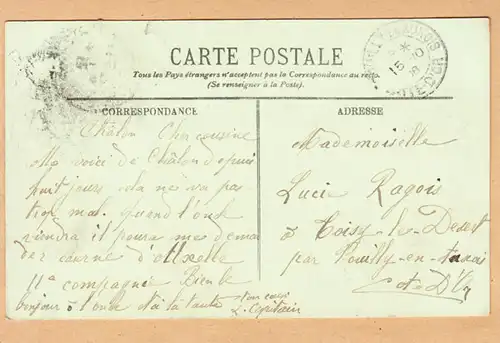 CARTE POSTALE
Tous les Pays étrangers n'acceptent pas la Correspondance au recto.
(Se renseigner à la Poste).
CORRESPONDANCE
Châlon Cher cousine
Me voici de Châlon depuis
huit jours cela ne va pas
trop mal. quand l'oncle
viendra il poura me deman
der caserne
11e compagnie Bien le
bonjour à l'oncle et à la tante
ton cousin
L. Capitain
ADRESSE
Mademoiselle
Lucie Ragois
à Thoisy-le-Desert
par Pouilly-en-Auxois
Cote D'Or